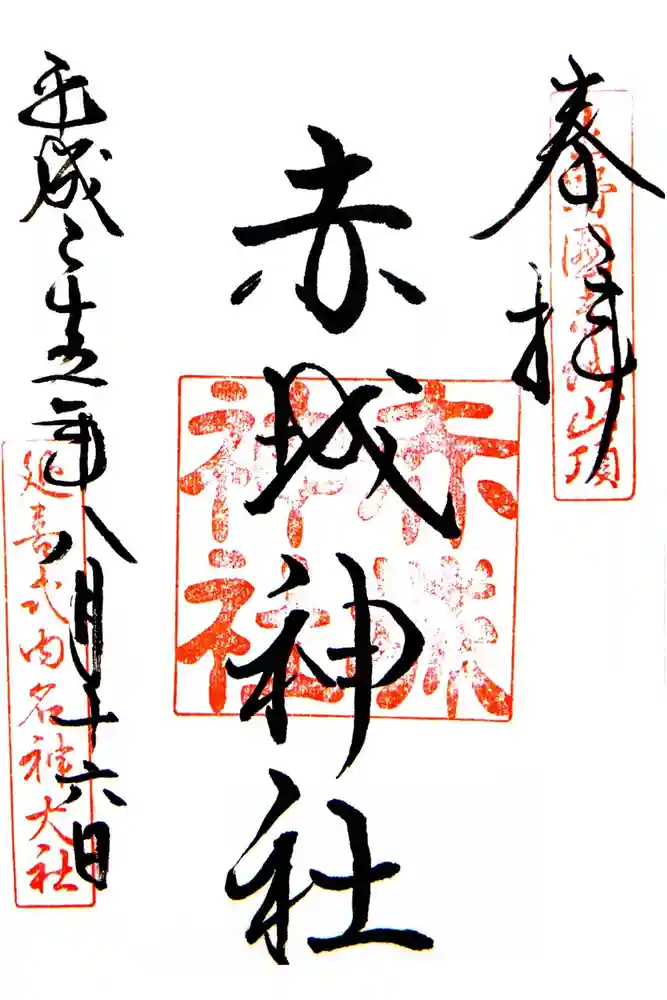 奉拝
上野國赤城山頂
赤城神社
赤城神社
平成二十五年八月十六日
延喜式内名神大社